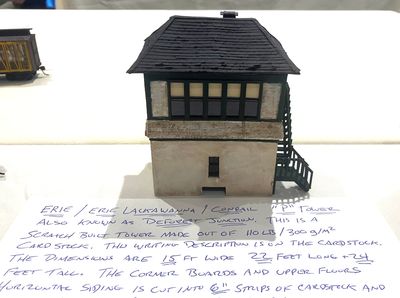 ERIE / ERIE LACKAWANNA / CONRAIL "P" TOWER
ALSO KNOWN AS DEFOREST JUNCTION. THIS IS A
SCRATCH BUILT TOWER MADE OUT OF 110 LB / 300 g/m²
CARDSTOCK. THIS WRITING DESCRIPTION IS ON THE CARDSTOCK.
THE DIMENSIONS ARE 15 FT WIDE 22 FEET LONG + 24
FEET TALL. THE CORNER BOARDS AND UPPER FLOORS
HORIZONTAL SIDING IS CUT INTO 6" STRIPS OF CARDSTOCK AND